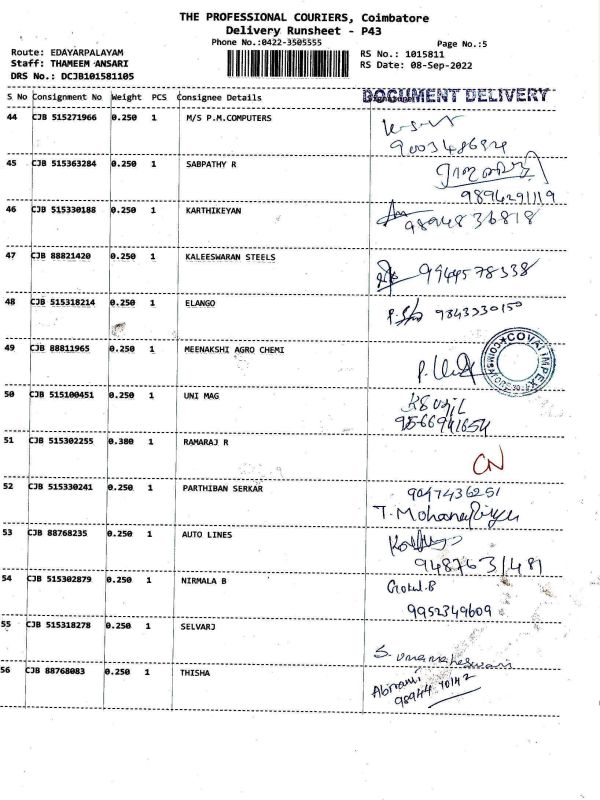 THE PROFESSIONAL COURIERS, Coimbatore
Delivery Runsheet - P43
Phone No.:0422-3505555
Page No.:5
Route: EDAYARPALAYAM
RS No.: 1015811
Staff: THAMEEM ANSARI
RS Date: 08-Sep-2022
DRS No.: DCJB101581105
S No Consignment No Weight PCS Consignee Details
DOCUMENT DELIVERY
44 CJB 515271966 0.250 1 M/S P.M.COMPUTERS
45 CJB 515363284 0.250 1 SABPATHY R
9894291119
46 CJB 515330188 0.250 1 KARTHIKEYAN
9894836818
47 CJB 88821420 0.250 1 KALEESWARAN STEELS
9944578338
48 CJB 515318214 0.250 1 ELANGO
9843330150
49 CJB 88811965 1 MEENAKSHI AGRO CHEMI
COVAI IMPEX
50 CJB 515100451 0.250 1 UNI MAG
51 CJB 515302255 0.380 1 RAMARAJ R
CN
52 CJB 515330241 0.250 1 PARTHIBAN SERKAR
9047436251
53 CJB 88768235 0.250 1 AUTO LINES
9487631481
54 CJB 515302879 0.250 1 NIRMALA B
Gokul.B
9952349609
55 CJB 515318278 0.250 1 SELVARJ
S. Umamaheswari
56 CJB 88768083 0.250 1 THISHA
Abirami
98944 70142